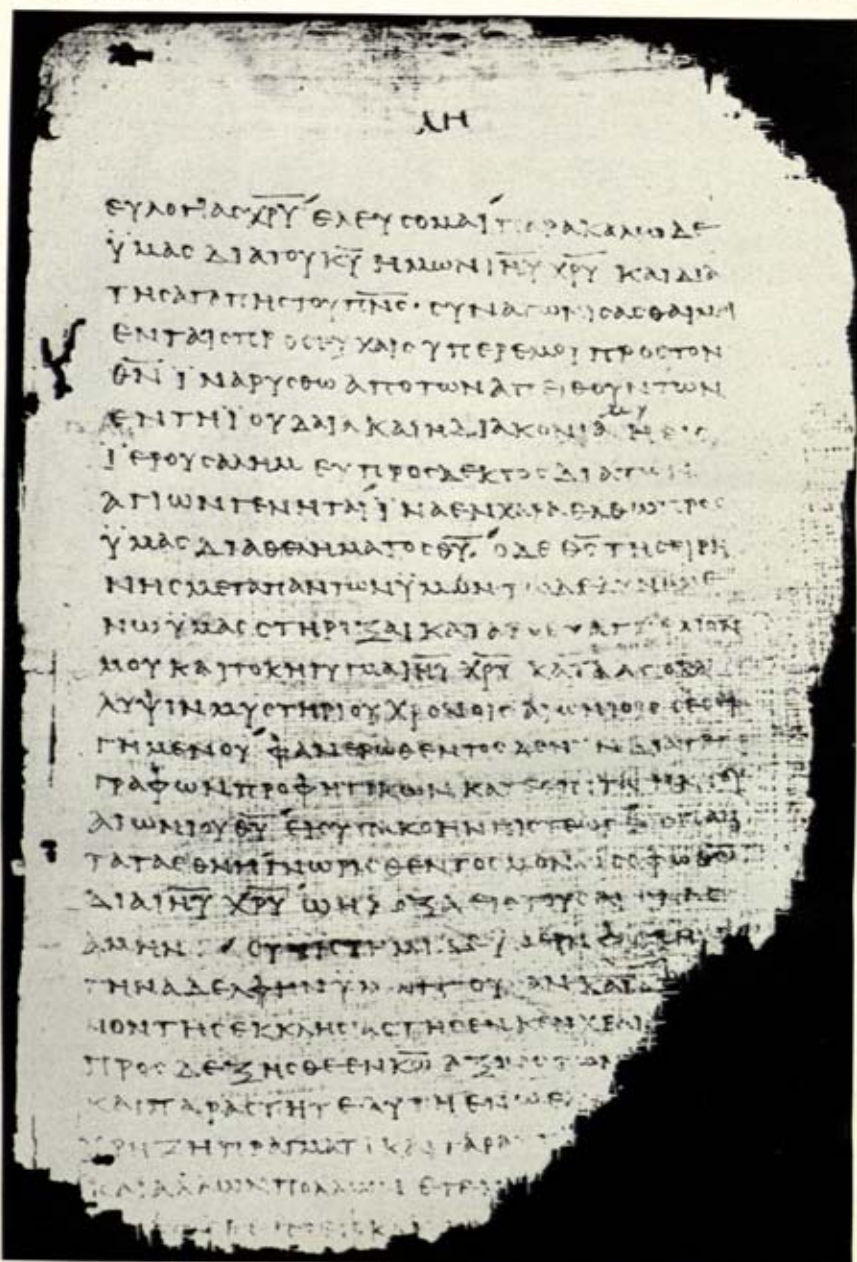 ΛΗ
ΕΥΛΟΓΙΑΣ Χ̅Ρ̅Υ̅ ΕΛΕΥΣΟΜΑΙ ΠΑΡΑΚΑΛΩ ΔΕ
ΫΜΑΣ ΔΙΑ ΤΟΥ Κ̅Υ̅ ΗΜΩΝ Ι̅Η̅Υ̅ Χ̅Ρ̅Υ̅ ΚΑΙ ΔΙΑ
ΤΗΣ ΑΓΑΠΗΣ ΤΟΥ Π̅Ν̅Σ̅ · ΣΥΝΑΓΩΝΙΣΑΣΘΑΙ ΜΟΙ
ΕΝ ΤΑΙΣ ΠΡΟΣΕΥΧΑΙΣ ΥΠΕΡ ΕΜΟΥ ΠΡΟΣ ΤΟΝ
Θ̅Ν̅ ΪΝΑ ΡΥΣΘΩ ΑΠΟ ΤΩΝ ΑΠΕΙΘΟΥΝΤΩΝ
ΕΝ ΤΗ ΙΟΥΔΑΙΑ ΚΑΙ Η ΔΙΑΚΟΝΙΑ ΜΟΥ Η ΕΙΣ
ΪΕΡΟΥΣΑΛΗΜ ΕΥΠΡΟΣΔΕΚΤΟΣ ΔΙΑ ΤΩΝ
ΑΓΙΩΝ ΓΕΝΗΤΑΙ ΪΝΑ ΕΝ ΧΑΡΑ ΕΛΘΩ ΠΡΟΣ
ΫΜΑΣ ΔΙΑ ΘΕΛΗΜΑΤΟΣ Θ̅Υ̅ Ο ΔΕ Θ̅Σ̅ ΤΗΣ ΕΙΡΗ
ΝΗΣ ΜΕΤΑ ΠΑΝΤΩΝ ΫΜΩΝ ΤΩ ΔΕ ΔΥΝΑΜΕ
ΝΩ ΥΜΑΣ ΣΤΗΡΙΞΑΙ ΚΑΤΑ ΤΟ ΕΥΑΓΓΕΛΙΟΝ
ΜΟΥ ΚΑΙ ΤΟ ΚΗΡΥΓΜΑ Ι̅Η̅Υ̅ Χ̅Ρ̅Υ̅ ΚΑΤΑ ΑΠΟΚΑ
ΛΥΨΙΝ ΜΥΣΤΗΡΙΟΥ ΧΡΟΝΟΙΣ ΑΙΩΝΙΟΙΣ ΣΕΣΕΙ
ΓΗΜΕΝΟΥ ΦΑΝΕΡΩΘΕΝΤΟΣ ΔΕ ΝΥΝ ΔΙΑ ΤΕ
ΓΡΑΦΩΝ ΠΡΟΦΗΤΙΚΩΝ ΚΑΤ ΕΠΙΤΑΓΗΝ ΤΟΥ
ΑΙΩΝΙΟΥ Θ̅Υ̅ ΕΙΣ ΥΠΑΚΟΗΝ ΠΙΣΤΕΩΣ ΕΙΣ ΠΑΝ
ΤΑ ΤΑ ΕΘΝΗ ΓΝΩΡΙΣΘΕΝΤΟΣ ΜΟΝΩ ΣΟΦΩ Θ̅Ω̅
ΔΙΑ Ι̅Η̅Υ̅ Χ̅Ρ̅Υ̅ Ω Η ΔΟΞΑ ΕΙΣ ΤΟΥΣ ΑΙΩΝΑΣ
ΑΜΗΝ ΣΥΝΙΣΤΗΜΙ ΔΕ ΥΜΕΙΝ ΦΟΙΒΗΝ
ΤΗΝ ΑΔΕΛΦΗΝ ΥΜΩΝ ΟΥΣΑΝ ΚΑΙ
ΝΟΝ ΤΗΣ ΕΚΚΛΗΣΙΑΣ ΤΗΣ ΕΝ ΚΕΝΧΡΕΑΙ
ΠΡΟΣΔΕΞΗΣΘΕ ΕΝ Κ̅Ω̅ ΑΞΙΩΣ ΤΩΝ
ΚΑΙ ΠΑΡΑΣΤΗΤΕ ΑΥΤΗ ΕΝ Ω Ε
ΧΡΗΖΗ ΠΡΑΓΜΑΤΙ ΚΑΙ ΓΑΡ Α
ΚΑΙ ΑΛΛΩΝ ΠΟΛΛΩΝ ΕΓΕ